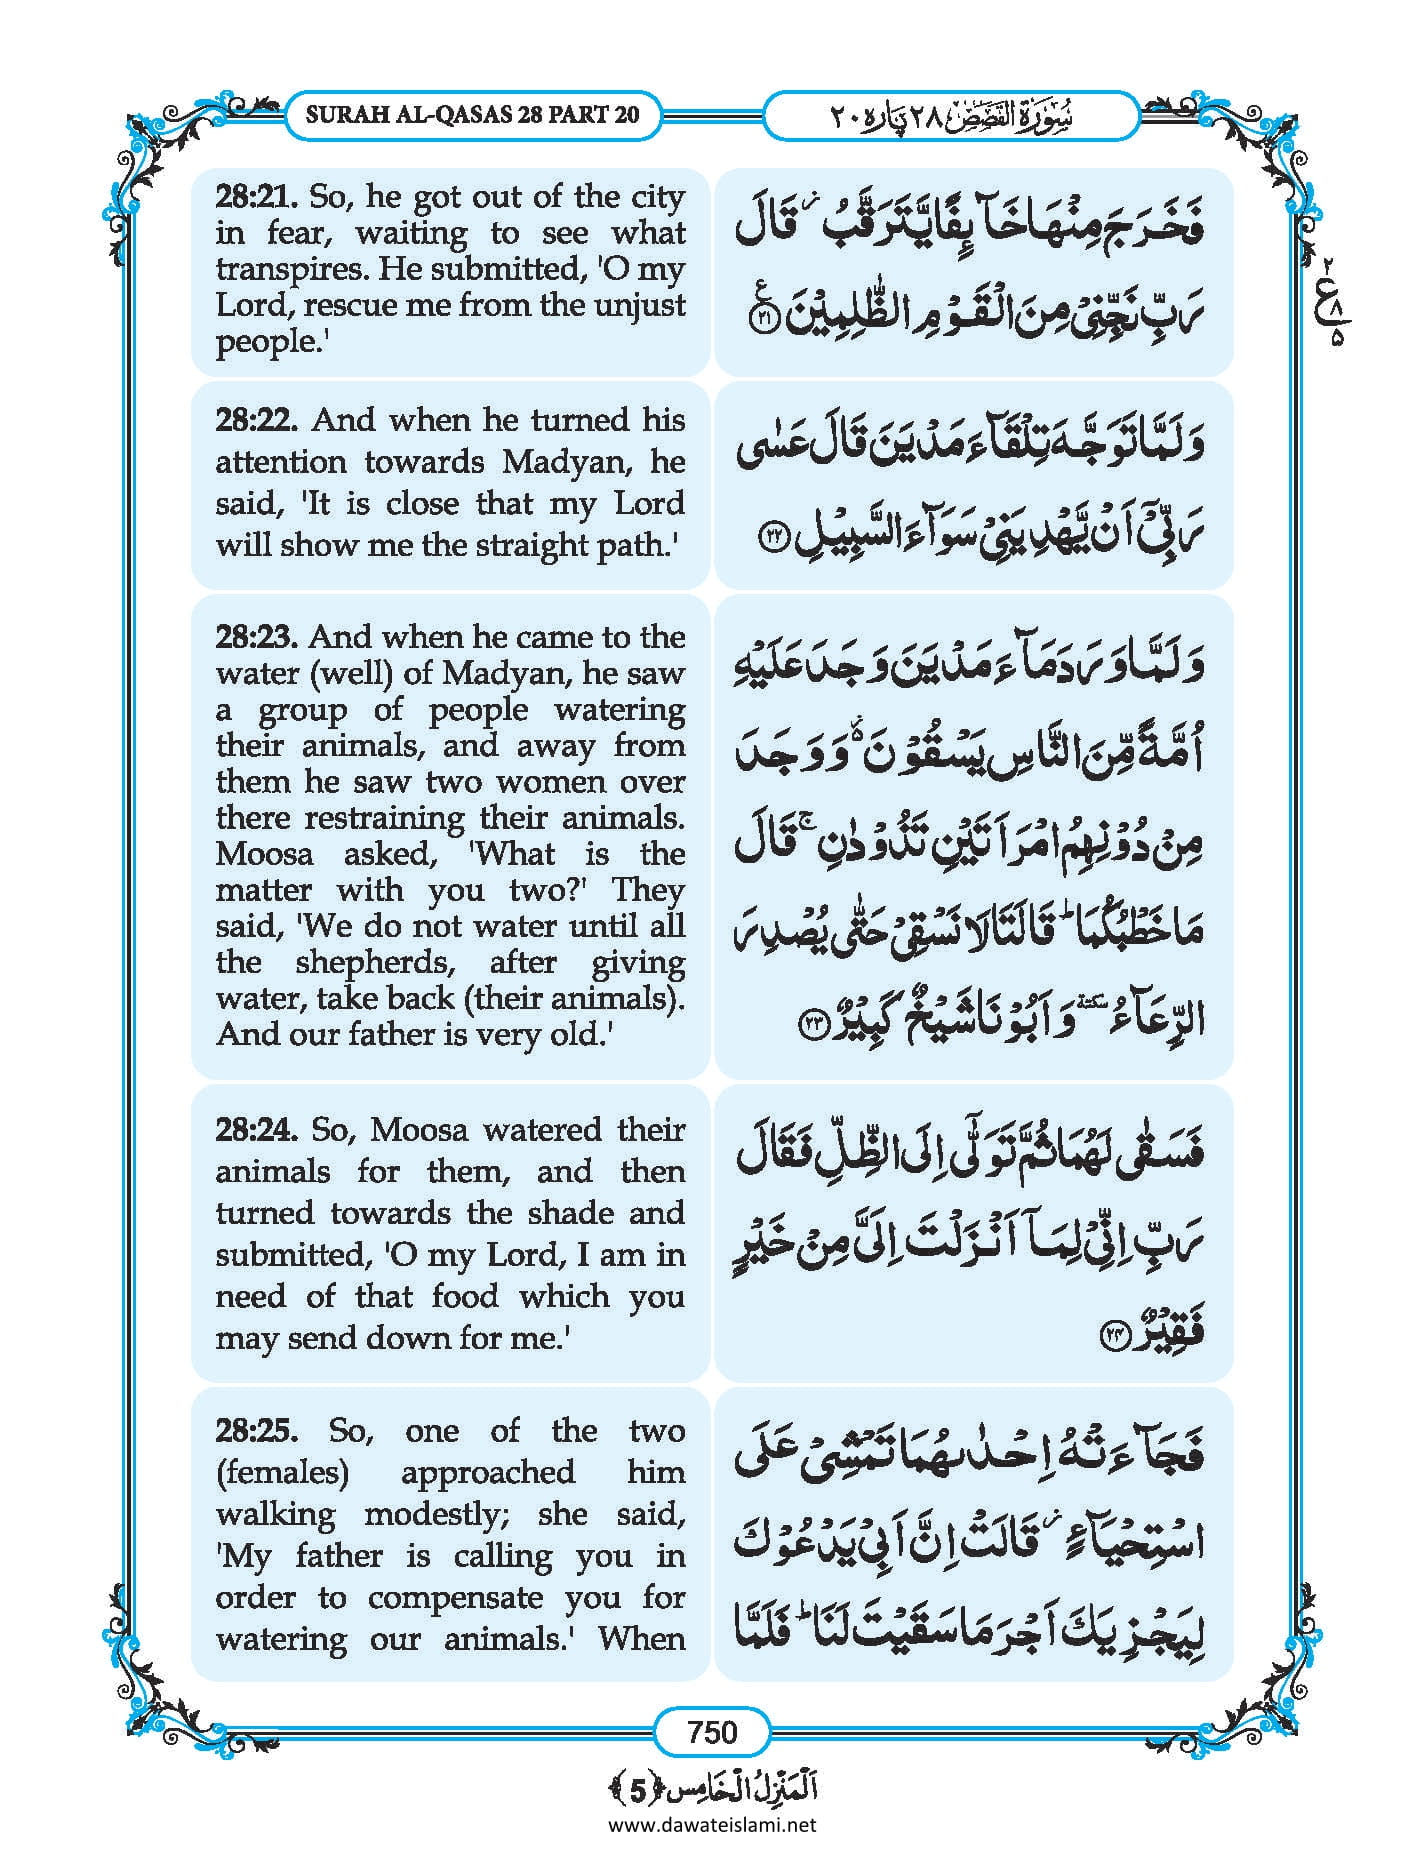 SURAH AL-QASAS 28 PART 20
سُوْرَةُ الْقَصَص ٢٨ پاره ٢٠
28:21. So, he got out of the city
in fear, waiting to see what
transpires. He submitted, 'O my
Lord, rescue me from the unjust
people.'
فَخَرَجَ مِنْهَا خَآئِفًا يَّتَرَقَّبُ ۫ قَالَ
رَبِّ نَجِّنِيْ مِنَ الْقَوْمِ الظّٰلِمِيْنَ ۟ع ٢١
٢
ع ٨
٥
28:22. And when he turned his
attention towards Madyan, he
said, 'It is close that my Lord
will show me the straight path.'
وَلَمَّا تَوَجَّهَ تِلْقَآءَ مَدْيَنَ قَالَ عَسٰى
رَبِّيْۤ اَنْ يَّهْدِيَنِيْ سَوَآءَ السَّبِيْلِ ٢٢
28:23. And when he came to the
water (well) of Madyan, he saw
a group of people watering
their animals, and away from
them he saw two women over
there restraining their animals.
Moosa asked, 'What is the
matter with you two?' They
said, 'We do not water until all
the shepherds, after giving
water, take back (their animals).
And our father is very old.'
وَلَمَّا وَرَدَ مَآءَ مَدْيَنَ وَجَدَ عَلَيْهِ
اُمَّةً مِّنَ النَّاسِ يَسْقُوْنَ ٥۬ وَ وَجَدَ
مِنْ دُوْنِهِمُ امْرَاَتَيْنِ تَذُوْدٰنِ ۚ قَالَ
مَا خَطْبُكُمَا ؕ قَالَتَا لَا نَسْقِيْ حَتّٰى يُصْدِرَ
الرِّعَآءُ سكتة وَ اَبُوْنَا شَيْخٌ كَبِيْرٌ ٢٣
28:24. So, Moosa watered their
animals for them, and then
turned towards the shade and
submitted, 'O my Lord, I am in
need of that food which you
may send down for me.'
فَسَقٰى لَهُمَا ثُمَّ تَوَلّٰۤى اِلَى الظِّلِّ فَقَالَ
رَبِّ اِنِّيْ لِمَاۤ اَنْزَلْتَ اِلَيَّ مِنْ خَيْرٍ
فَقِيْرٌ ٢٤
28:25. So, one of the two
(females) approached him
walking modestly; she said,
'My father is calling you in
order to compensate you for
watering our animals.' When
فَجَآءَتْهُ اِحْدٰىهُمَا تَمْشِيْ عَلَى
اسْتِحْيَآءٍ ۫ قَالَتْ اِنَّ اَبِيْ يَدْعُوْكَ
لِيَجْزِيَكَ اَجْرَ مَا سَقَيْتَ لَنَا ؕ فَلَمَّا
750
اَلْمَنْزِلُ الْخَامِس ﴿5﴾
www.dawateislami.net